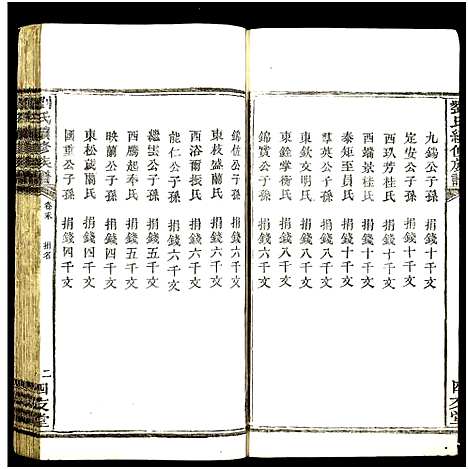 劉氏續修族譜
九錫公子孫 捐錢十千文
定安公子孫 捐錢十千文
西玖芳桂氏 捐錢十千文
西瑞景桂氏 捐錢十千文
泰矩至員氏 捐錢十千文
東欽文明氏 捐錢八千文
東銓掌衡氏 捐錢八千文
錦賞公子孫 捐錢八千文
四友堂
錦位公子孫 捐錢六千文
東枝盛蘭氏 捐錢六千文
西浴爾振氏 捐錢六千文
能仁公子孫 捐錢六千文
繼雲公子孫 捐錢五千文
西鷹起奉氏 捐錢五千文
映蘭公子孫 捐錢四千文
東松葳蘭氏 捐錢四千文
國重公子孫 捐錢四千文
劉氏續修族譜
卷末 捐名
二
四友堂